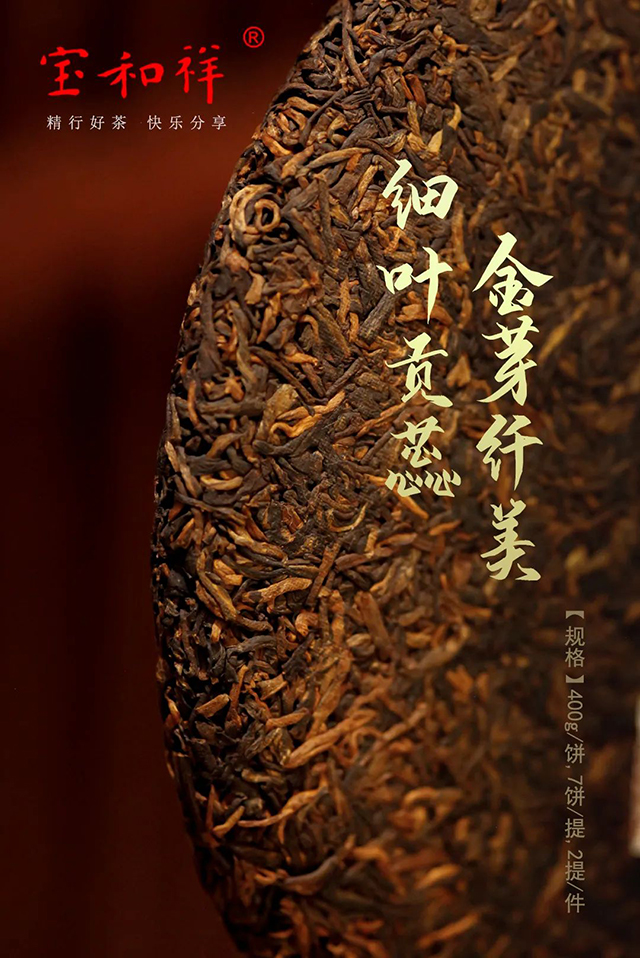 宝和祥®
精行好茶 快乐分享
金芽纤美
细叶贡蕊
【规格】400g/饼, 7饼/提, 2提/件